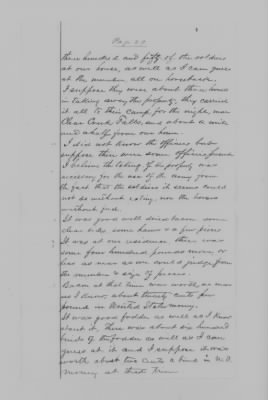 Page 20
three hundred and fifty of the soldiers
at our house, as well as I can guess
at the number all on horseback.
I suppose they were about three hours
in taking away the property, they carried
it all to their Camp for the night, near
Clear Creek Falls, and about a mile
and a half from our home.
I did not know the officers but
suppose there were some officers present
I believe the taking of the property was
necessary for the use of the army from
the fact that the soldiers it seems could
not do without eating, nor the horses
without feed.
It was good well dried bacon some
clear sides some hams & a few pieces
It was at our residence there was
some four hundred pounds more or
less as near as we could judge from
the number & size of pieces.
Bacon at that time was worth, as near
as I know, about twenty cents per
pound in United States money.
It was good fodder as well as I know
about it, there was about six hundred
binds of the fodder as well as I can
guess at it and I suppose it was
worth about two cents a bind in U.S.
money at that time